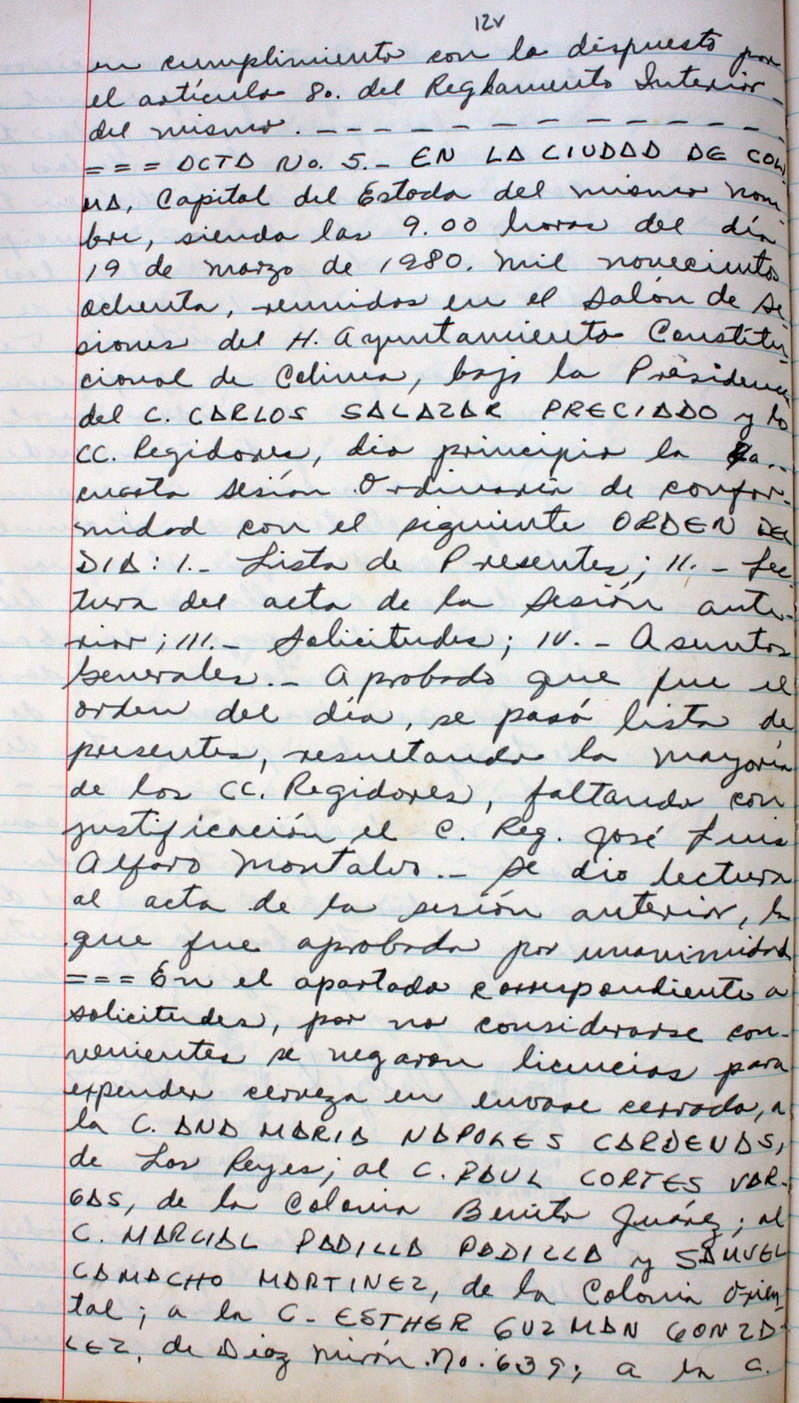 12v
en cumplimiento con lo dispuesto por
el artículo 8o. del Reglamento Interior-
del mismo. - - - - - - - - - - - - - -
= = = ACTA No. 5.- EN LA CIUDAD DE COLI
MA, Capital del Estado del mismo nom
bre, siendo las 9.00 horas del día
19 de marzo de 1980. mil novecientos
ochenta, reunidos en el Salón de Se-
siones del H. Ayuntamiento Constitu-
cional de Colima, bajo la Presidencia
del C. CARLOS SALAZAR PRECIADO y lo
CC. Regidores, dio principio la
cuarta Sesión Ordinaria de confor-
midad con el siguiente ORDEN DEL
DIA: I.- Lista de Presentes; II.- Lec
tura del acta de la Sesión ante-
rior; III.- Solicitudes; IV.- Asuntos
Generales.- Aprobado que fue el
orden del día, se pasó lista de
presentes, resultando la mayoría
de los CC. Regidores, faltando con
justificación el C. Reg. José Luis
Alfaro Montalvo.- Se dio lectura
al acta de la sesión anterior, la
que fue aprobada por unanimidad
= = = En el apartado correspondiente a
solicitudes, por no considerarse con-
venientes se negaron licencias para
expender cerveza en envase cerrado, a
la C. ANA MARIA NAPOLES CARDENAS,
de Los Reyes; al C. RAUL CORTES VAR-
GAS, de la Colonia Benito Juárez; al
C. MARCIAL PADILLA PADILLA y SAMUEL
CAMACHO MARTINEZ, de la Colonia Orien
tal; a la C. ESTHER GUZMAN GONZA-
LEZ, de Diaz Mirón No. 639; a la C.